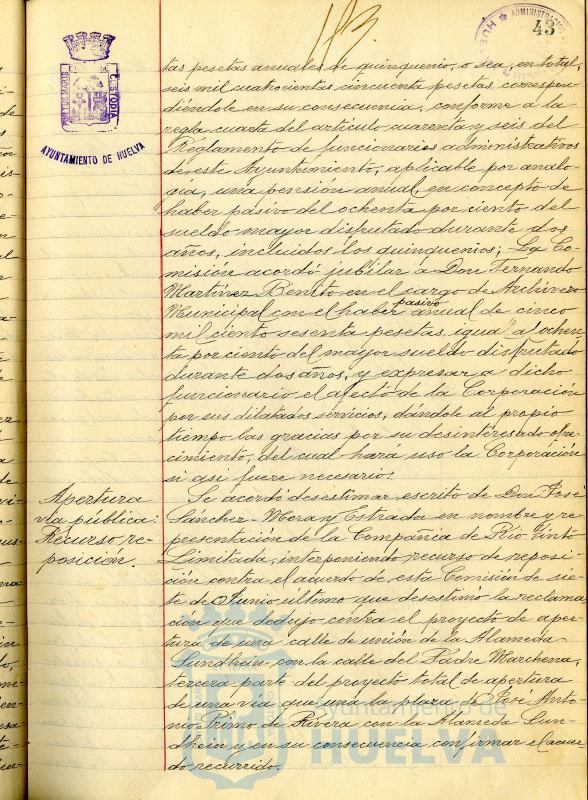 43
ADMINISTRACION
PORTUS MARIS
CUSTODIA
AYUNTAMIENTO DE HUELVA
tas pesetas anuales de quinquenio, o sea, en total,
seis mil cuatrocientas cincuenta pesetas correspon-
diéndole en su consecuencia, conforme a la
regla cuarta del artículo cuarenta y seis del
Reglamento de funcionarios administrativos
de este Ayuntamiento, aplicable por analo-
gía, una pensión anual, en concepto de
haber pasivo del ochenta por ciento del
sueldo mayor disfrutado durante dos
años, incluidos los quinquenios; La Co-
misión acordó jubilar a Don Fernando
Martínez Benito en el cargo de Archivero
Municipal con el haber pasivo anual de cinco
mil ciento sesenta pesetas, igual al ochen-
ta por ciento del mayor sueldo disfrutado
durante dos años, y expresar a dicho
funcionario el afecto de la Corporación
por sus dilatados servicios, dándole al propio
tiempo las gracias por su desinteresado ofre-
cimiento, del cual hará uso la Corporación
si asi fuere necesario.
Apertura
via pública:
Recurso re-
posición.
Se acordó desestimar escrito de Don José
Sánchez-Mora y Estrada en nombre y re-
presentación de la Compañia de Rio Tinto
Limitada, interponiendo recurso de reposi-
ción contra el acuerdo de esta Comisión de sie-
te de Junio último que desestimó la reclama-
ción que dedujo contra el proyecto de aper-
tura de una calle de unión de la Alameda
Sundhein con la calle del Padre Marchena,
tercera parte del proyecto total de apertura
de una via que una la plaza de José Anto-
nio Primo de Rivera con la Alameda Sun-
dhein y en su consecuencia confirmar el acuer-
do recurrido.
Ayuntamiento de
HUELVA